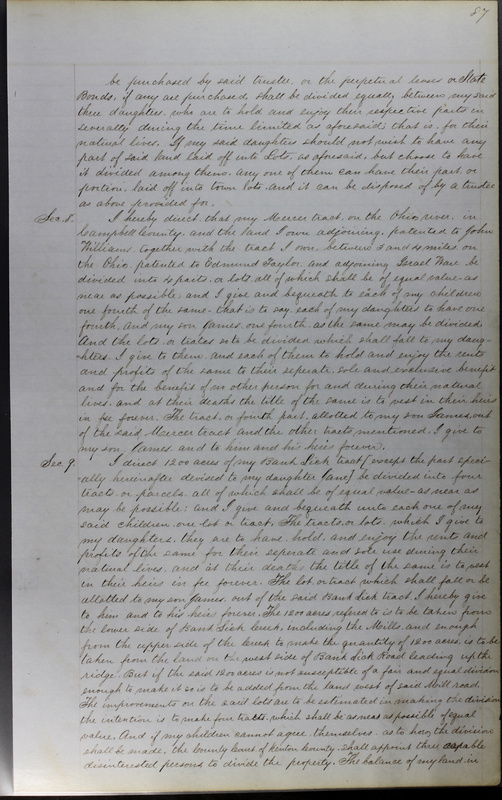 87
be purchased by said trustee, or the perpetual leases or State
Bonds, if any are purchased, shall be divided equally between my said
three daughters, who are to hold and enjoy their respective parts in
severalty during the time limited as aforesaid, that is, for their
natural lives. If my said daughters should not wish to have any
part of said land laid off into Lots, as aforesaid, but choose to have
it divided among them, any one of them can have their part or
portion, laid off into town lots, and it can be disposed of by a trustee
as above provided for.
Sec. 8. I hereby direct, that my Mercer tract, on the Ohio river, in
Campbell County, and the land I own adjoining, patented to John
Williams, together with the tract I own, between 3 and 4 miles on
the Ohio, patented to Edmund Taylor, and adjoining Israel Ware be
divided into 4 parts, or lots, all of which shall be of equal value as
near as possible, and I give and bequeath to each of my children
one fourth of the same, that is to say, each of my daughters to have one
fourth, and my son James, one fourth, as the same may be divided,
And the lots, or tracts so to be divided which shall fall to my daugh-
ters, I give to them, and each of them to hold and enjoy the rents
and profits of the same to their seperate, sole and exclusive benefit
and for the benefit of no other person for and during their natural
lives, and at their deaths the title of the same is to vest in their heirs
in fee forever. The tract, or fourth part, allotted to my son James, out
of the said Mercer tract and the other tracts mentioned, I give to
my son James, and to him and his heirs forever.
Sec. 9. I direct 1200 acres of my Bank Lick tract (except the part speci-
ally hereinafter devised to my daughter Jane) be divided into four
tracts, or parcels, all of which shall be of equal value as near as
may be possible; and I give and bequeath unto each one of my
said children, one lot or tract. The tracts, or lots, which I give to
my daughters, they are to have, hold, and enjoy the rents and
profits of the same for their seperate and sole use during their
natural lives, and at their deaths, the title of the same is to vest
in their heirs in fee forever. The lot or tract which shall fall or be
allotted to my son James, out of the said Bank Lick tract, I hereby give
to him and to his heirs forever. The 1200 acres, refered to is to be taken from
the lower side of Bank Lick Creek, including the Mills, and enough
from the upper side of the Creek to make the quantity of 1200 acres, is to be
taken from the land on the west side of Bank Lick Road leading up the
ridge. But if the said 1200 acres is not susceptible of a fair and equal division
enough to make it so is to be added from the land west of said Mill road.
The improvements on the said lots are to be estimated in making the division
the intention is to make four tracts, which shall be as near as possible of equal
value. And if my children cannot agree, themselves, as to how the division
shall be made, the County Court of Kenton County, shall appoint three capable
disinterested persons to divide the property. The balance of my land in